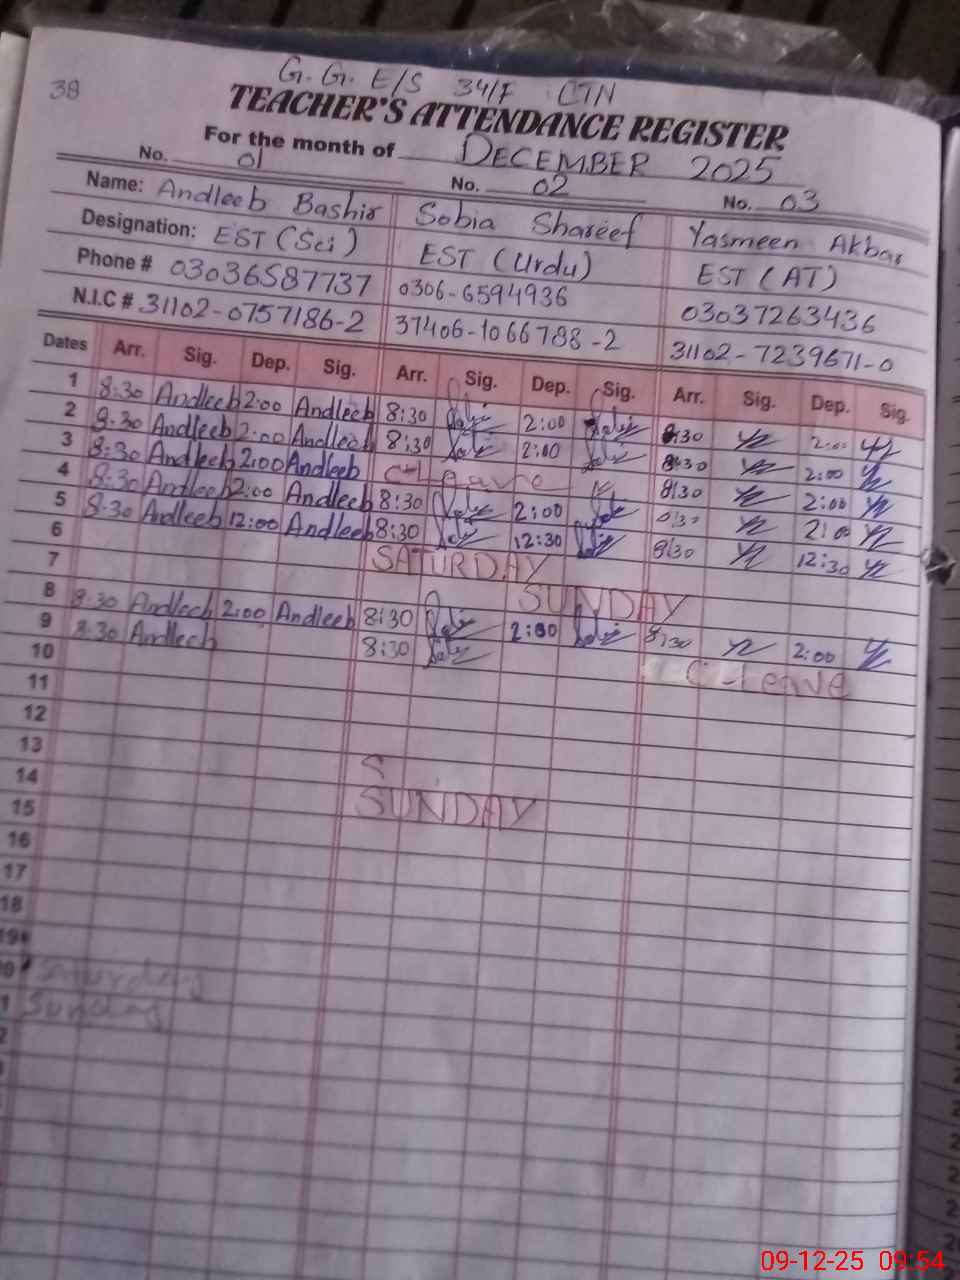 38
G.G. E/S 34/F CTN
TEACHER'S ATTENDANCE REGISTER
For the month of DECEMBER 2025
No. 01 No. 02 No. 03
Name: Andleeb Bashir Sobia Shareef Yasmeen Akbar
Designation: EST (Sci) EST (Urdu) EST (AT)
Phone # 03036587737 0306-6594936 03037263436
N.I.C # 31102-0757186-2 37406-1066788-2 31102-7239671-0
Dates Arr. Sig. Dep. Sig. Arr. Sig. Dep. Sig. Arr. Sig. Dep. Sig.
1 8:30 Andleeb 2:00 Andleeb 8:30 2:00 8:30 2:00
2 8:30 Andleeb 2:00 Andleeb 8:30 2:00 8:30 2:00
3 8:30 Andleeb 2:00 Andleeb Leave 8:30 2:00
4 8:30 Andleeb 2:00 Andleeb 8:30 2:00 8:30 2:00
5 8:30 Andleeb 12:00 Andleeb 8:30 12:30 8:30 12:30
6 SATURDAY
7 SUNDAY
8 8:30 Andleeb 2:00 Andleeb 8:30 2:00 8:30 2:00
9 8:30 Andleeb 8:30 C-Leave
10
11
12
13 S
14 SUNDAY
15
16
17
18
19
Saturday
Sunday
09-12-25 09:54